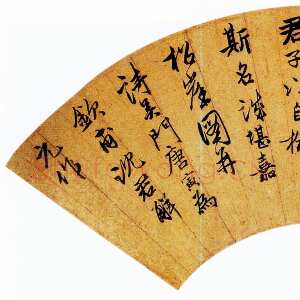 君子以自拟
斯名深堪嘉
松崖图并
诗吴门唐寅为
钦甫沈君解
元作